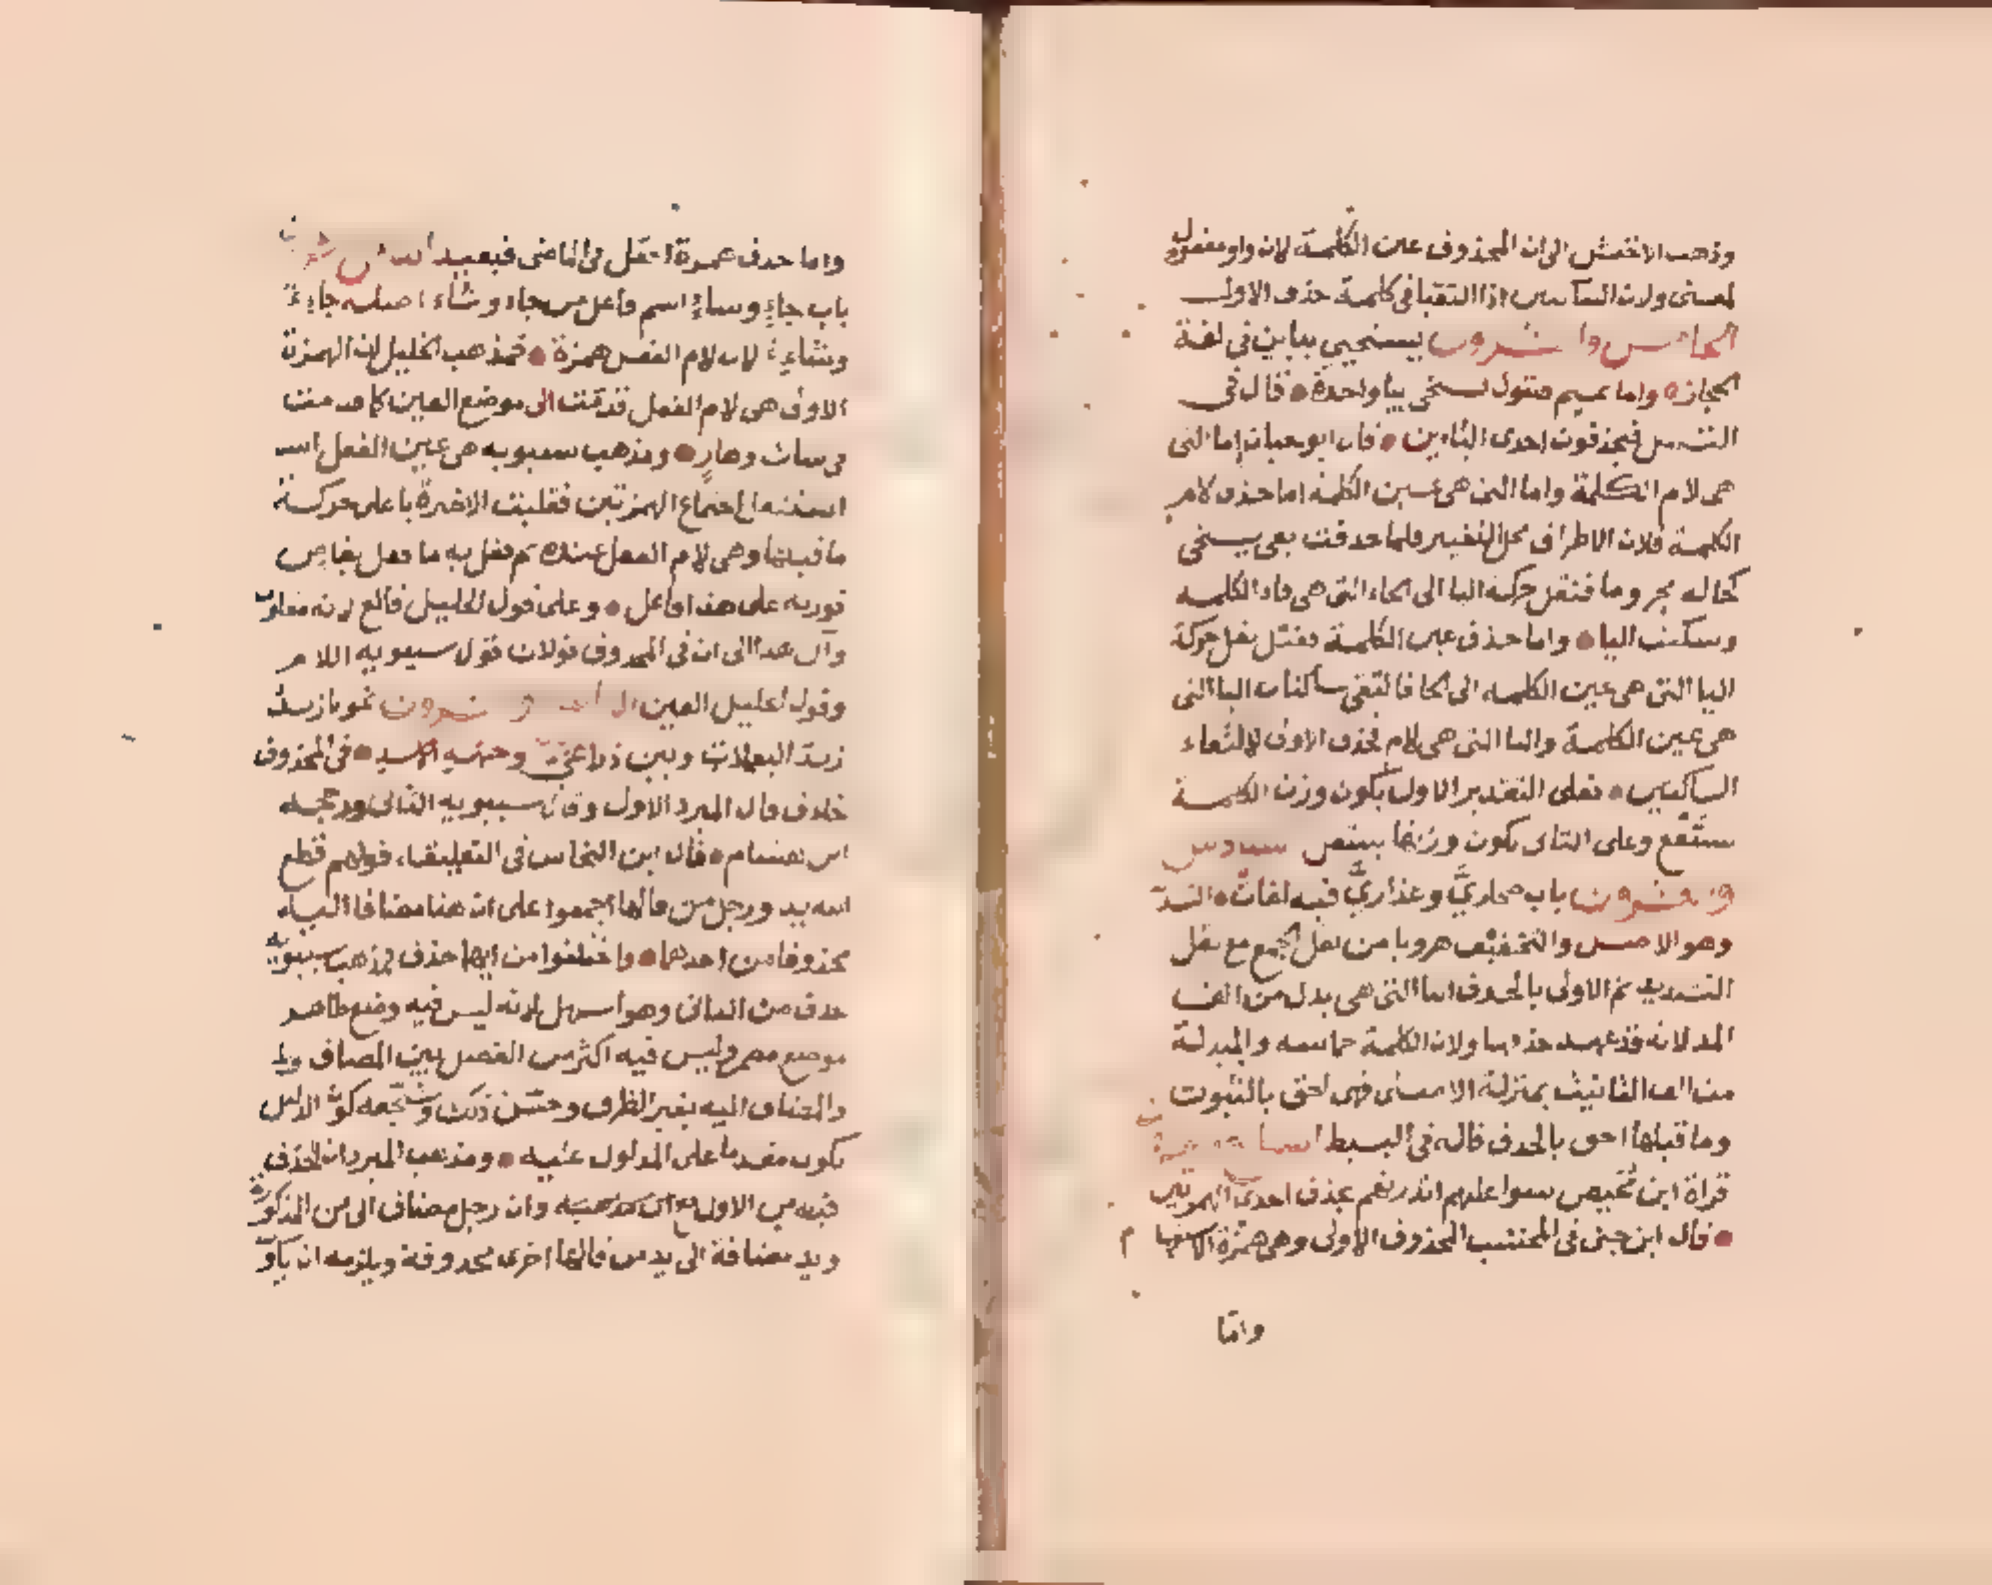 وذهب الاخفش الى ان المحذوف عين الكلمة لان واو مفعول
لمعنى ولان الساكنين اذا التقيا في كلمة حذف الاول
الخامس والعشرون يستحيي بياين في لغة
الحجاز واما تميم فتقول يستحي بيا واحدة قال في
التسهيل فيحذفون احدى اليائين قال ابو حيان اما التي
هي لام الكلمة واما التي هي عين الكلمة اما حذف لام
الكلمة فلان الاطراف محل التغيير فلما حذفت بقي يستحي
كحاله مجزوما فنقل حركة اليا الى الحاء التي هي فاء الكلمة
وسكنت اليا واما حذف عين الكلمة فنقل حركة
اليا التي هي عين الكلمة الى الحا فالتقى ساكنان اليا التي
هي عين الكلمة واليا التي هي لام فحذف الاول لالتقاء
الساكنين فعلى التقدير الاول يكون وزن الكلمة
يستفع وعلى الثاني يكون وزنها يستفل السادس
والعشرون باب صحاري وعذاري فيه لغات التشديد
وهو الاصل والتخفيف هروبا من ثقل الجمع مع ثقل
التشديد ثم الاولى بالحذف اليا التي هي بدل من الف
المد لانه قد عهد حذفها ولان الكلمة خماسية والمبدلة
من الف التانيث بمنزلة الاصلي فهي احق بالثبوت
وما قبلها احق بالحذف قاله في البسيط
قراة ابن محيصن سوا عليهم انذرتهم بحذف احدى الهمزتين
قال ابن جني في المحتسب المحذوف الاولى وهي همزة الاستفهام
واما
واما حذف همزة افعل في الماضي فبعيد
باب جاءٍ وشاءٍ اسم فاعل من جاء وشاء اصله جاءء
وشاءء لان لام الفعل همزة فمذهب الخليل ان الهمزة
الاولى هي لام الفعل قدمت الى موضع العين كما قدمت
في شاك وهار ومذهب سيبويه هي عين الفعل
استثقل اجتماع الهمزتين فقلبت الاخيرة يا على حركة
ما قبلها وهي لام الفعل عنده ثم فعل به ما فعل بقاض
فوزنه على هذا فاعل وعلى قول الخليل فالع لانه مقلوب
وآل هذا الى ان في المحذوف قولان قول سيبويه اللام
وقول الخليل العين نحو يا زيد
زيد اليعملات وبين ذراعي وجبهة الاسد في المحذوف
خلاف قال المبرد الاول وقال سيبويه الثاني ورجحه
ابن هشام قال ابن النحاس في التعليقة قولهم قطع
الله يد ورجل من قالها اجمعوا على ان هنا مضافا اليه
محذوفا من احدهما واختلفوا من ايهما حذف فمذهب سيبويه
حذف من الثاني وهو اسهل لانه ليس فيه وضع ظاهر
موضع مضمر وليس فيه اكثر من الفصل بين المضاف
والمضاف اليه بغير الظرف وحسن ذلك وشجعه كون الدليل
يكون مقدما على المدلول عليه ومذهب المبرد ان الحذف
فيه من الاول وان رجل مضاف الى من المذكورة
ويد مضافة الى يد من قالها اخرى محذوفة ويلزمه ان يكون